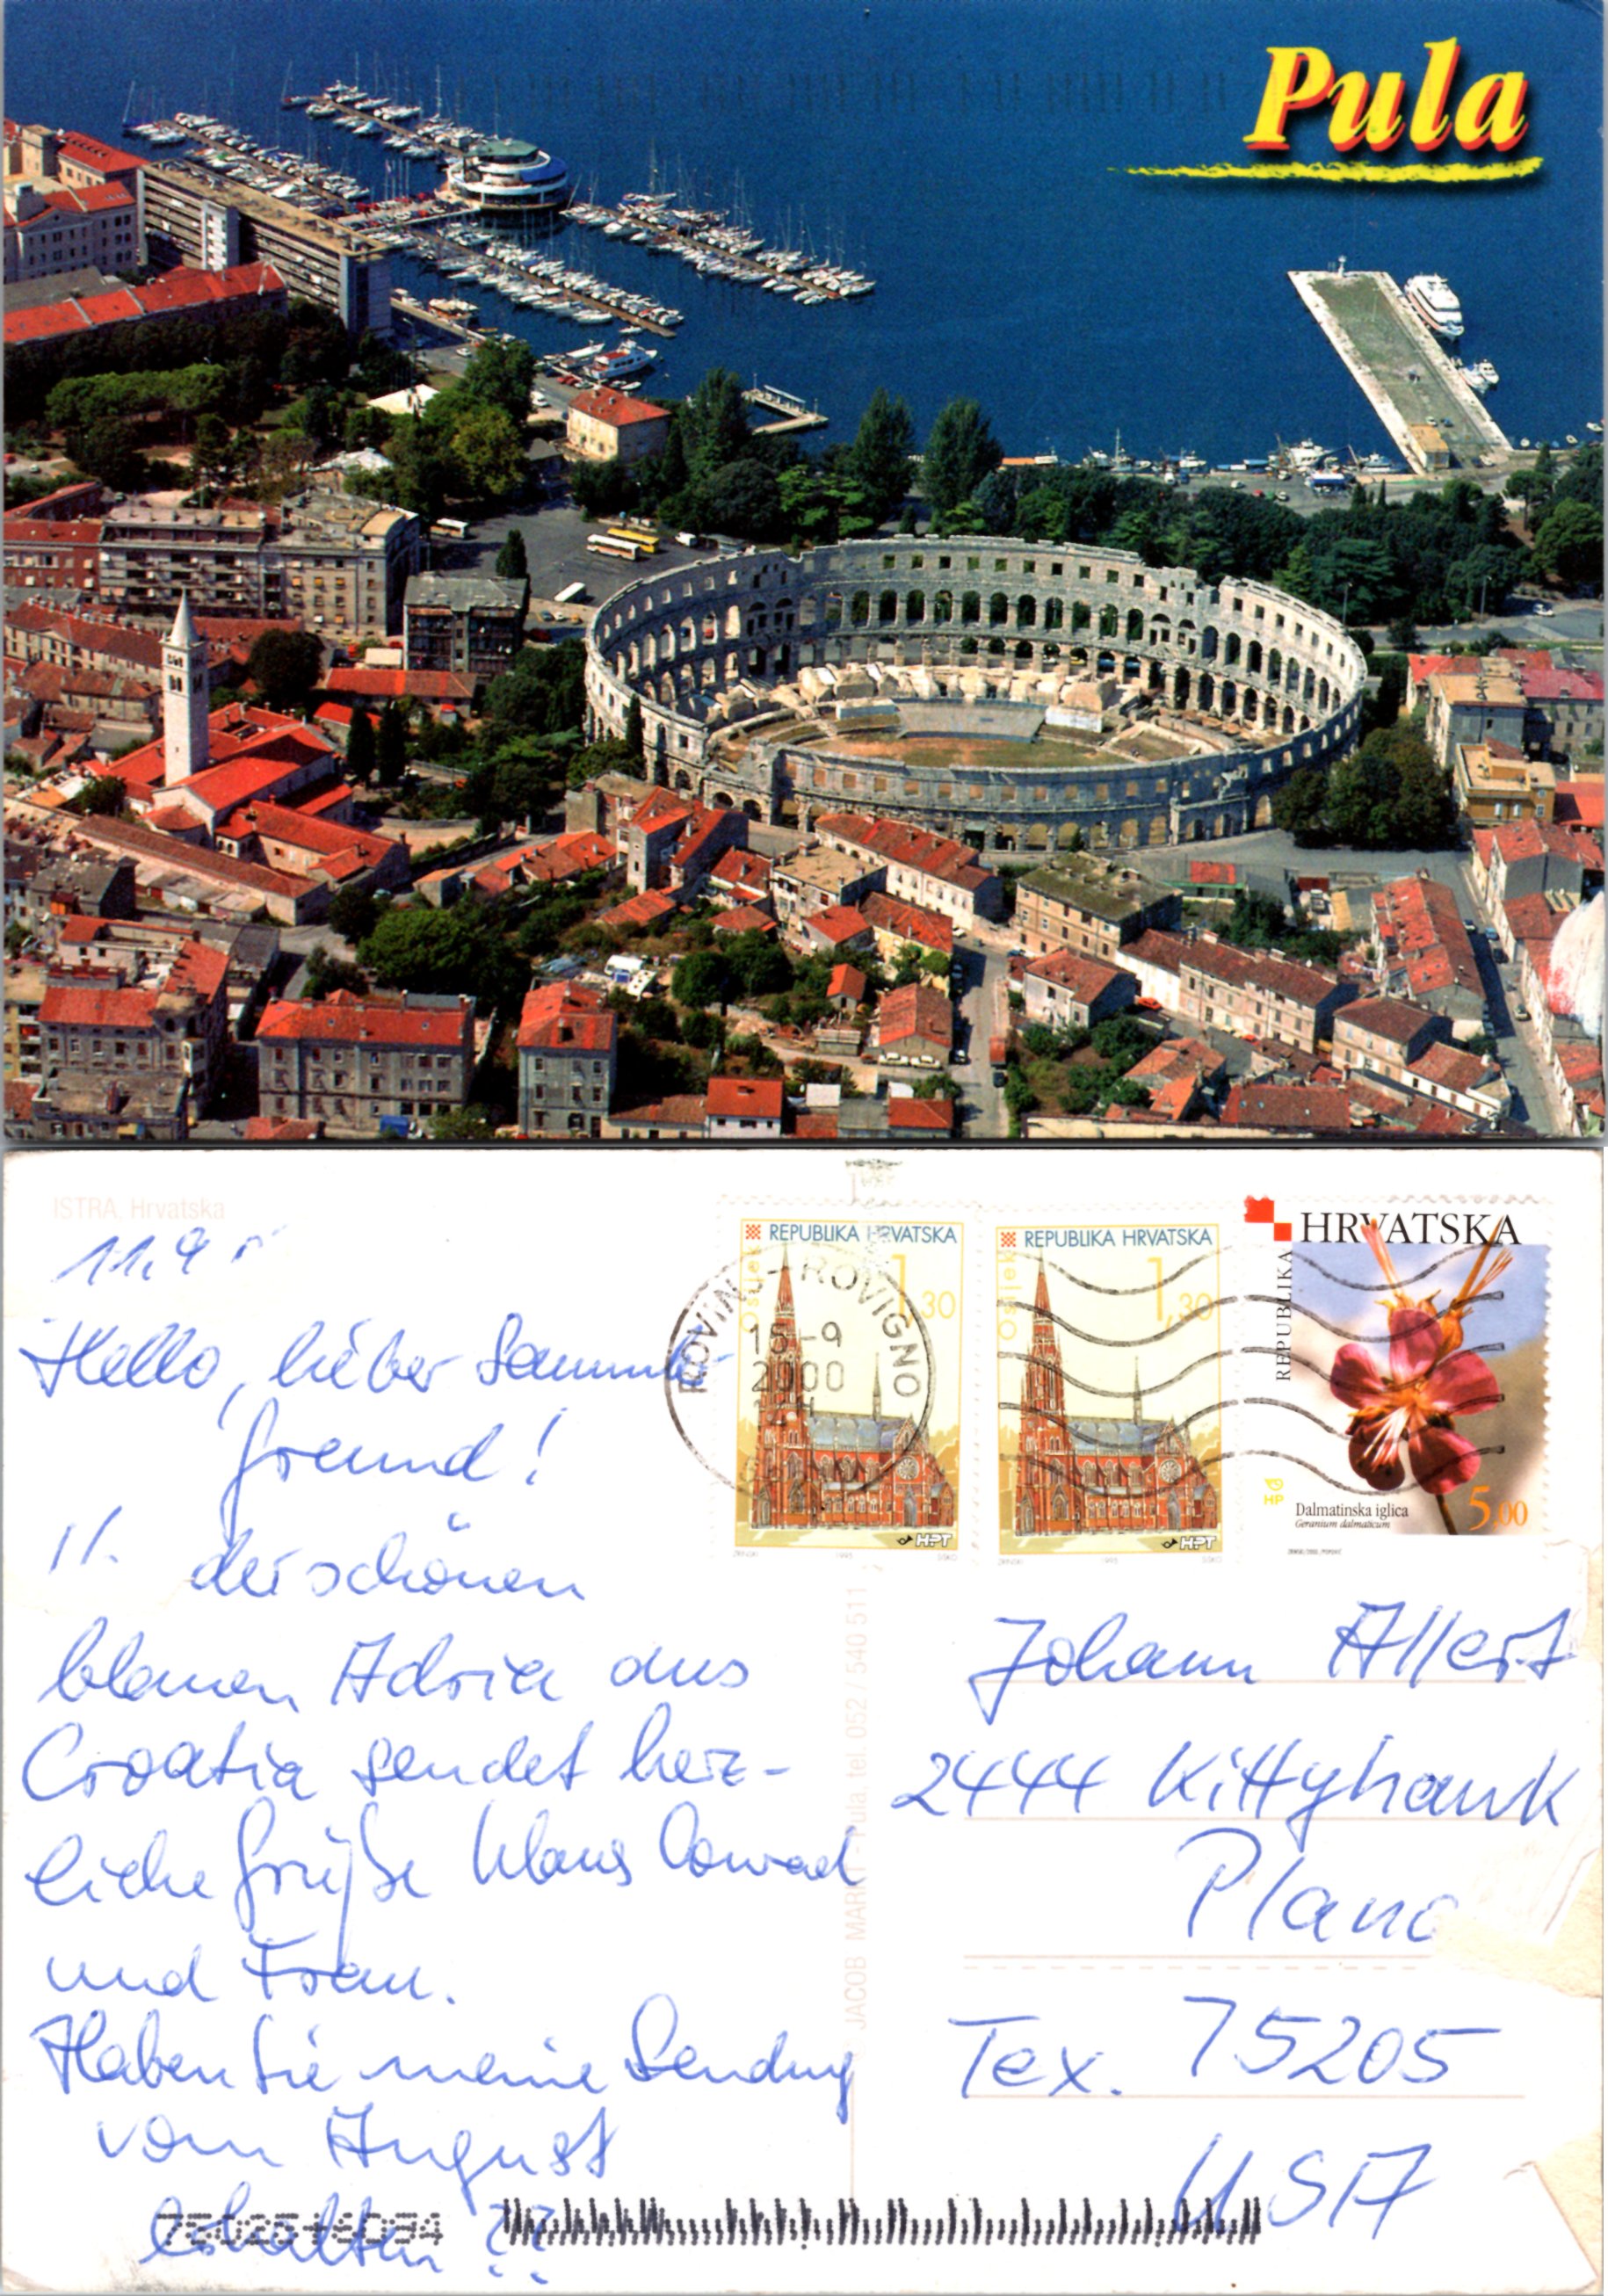 Pula
ISTRA, Hrvatska
11.9
Hello, lieber Sammler
freund!
der schönen
blauen Adria aus
Croatia sendet herz-
liche Grüße Klaus Conrad
und Frau.
Haben Sie meine Sendung
vom August
erhalten ??
REPUBLIKA HRVATSKA
Osijek
1,30
HPT
1995
ROVINJ - ROVIGNO
15-9
2000
REPUBLIKA HRVATSKA
Osijek
1,30
HPT
1995
HRVATSKA
REPUBLIKA
HP
Dalmatinska iglica
Geranium dalmaticum
5,00
JACOB MARKT - Pula, tel. 052 / 540 511
Johann Allert
2444 Kittyhawk
Plano
Tex. 75205
USA